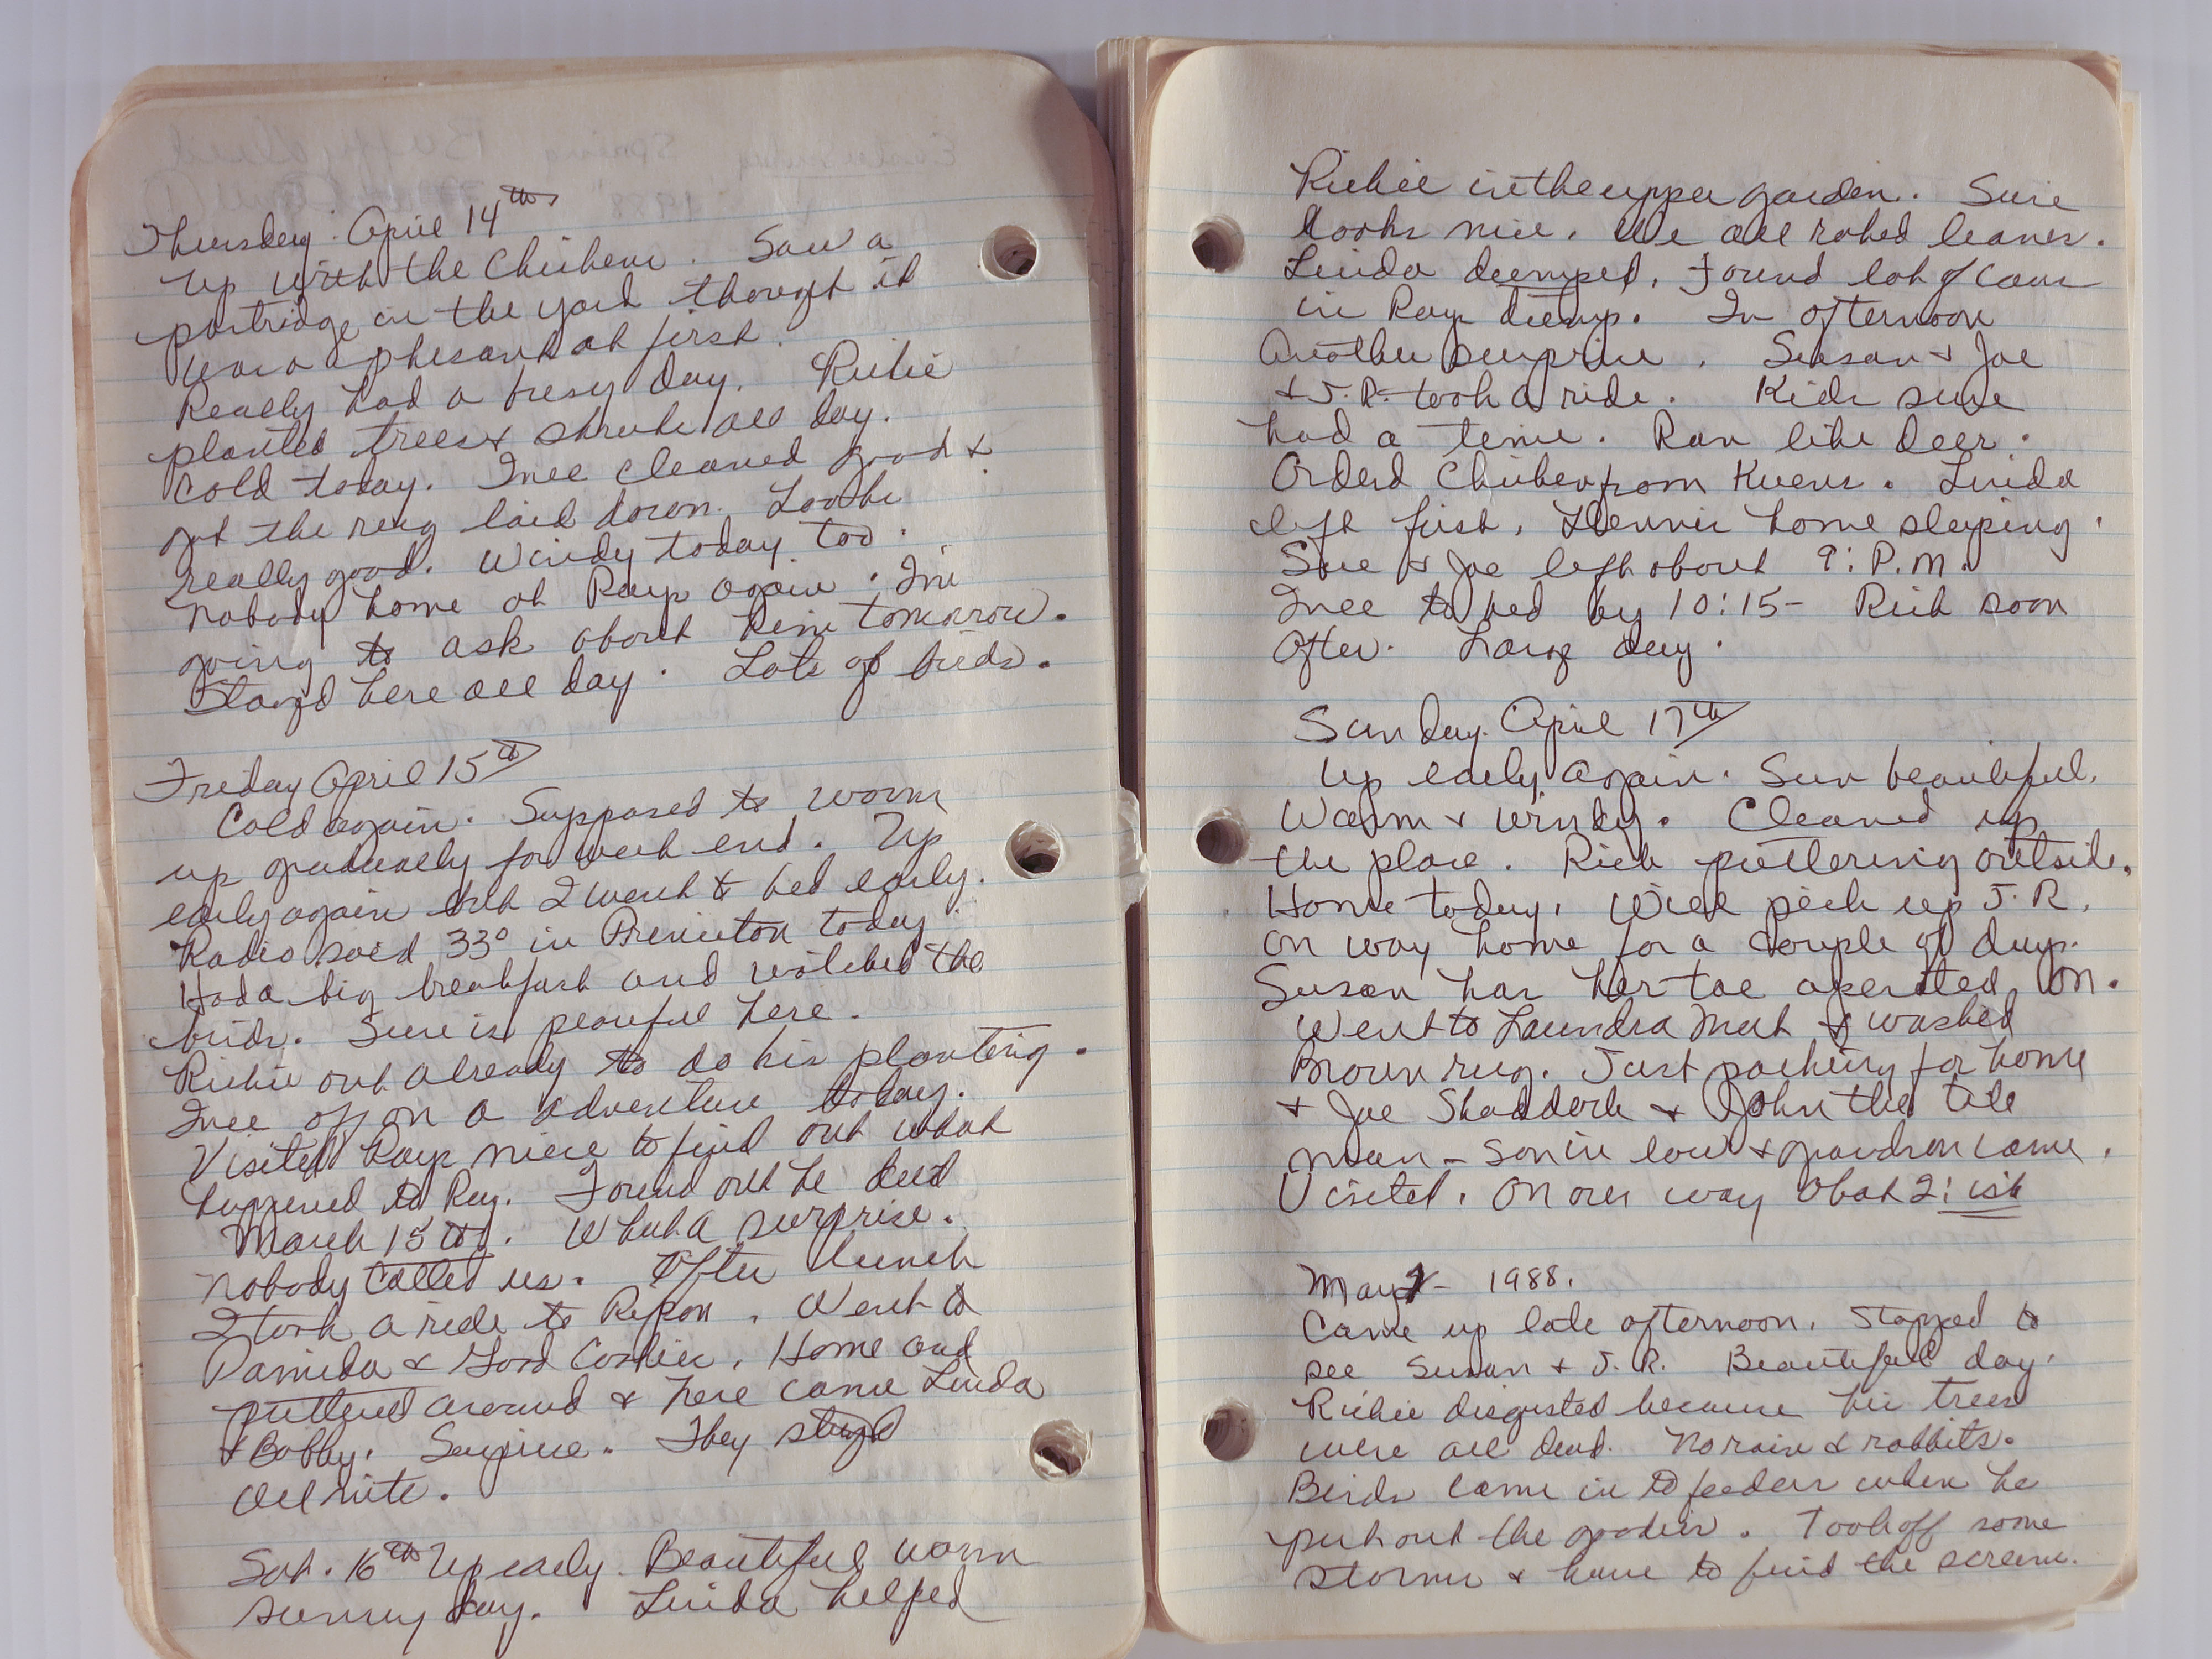 Thursday. April 14th
Up with the Chickens. Saw a
partridge in the yard thought it
was a phesant at first.
Really had a busy day. Richie
planted trees & shrubs all day.
Cold today. Inee cleaned good &
got the rug laid down. Looks
really good. Windy today too.
Nobody home at Rays again. I'm
going to ask about him tomorrow.
Stayed here all day. Lots of birds.
Friday April 15th
Cold again. Supposed to warm
up gradually for week end. Up
early again but I went to bed early.
Radio said 33° in Princeton today.
Had a big breakfast and watched the
birds. Sure is peaceful here.
Richie out already to do his planting.
Inee off on a adventure today.
Visited Rays niece to find out what
happened to Ray. Found out he died
March 15th. What a surprise.
Nobody called us. After lunch
I took a ride to Ripon. Went to
Pamida & Good Cookies. Home and
puttered around & here came Linda
& Bobby. Surprise. They stayd
all nite.
Sat. 16th Up early. Beautiful warm
sunny day. Linda helped
Richie in the upper garden. Sure
looks nice. We all raked leaves.
Linda dumped. Found lot of cans
in Ray dump. In afternoon
Another surprise. Susan & Joe
& J.R. took a ride. Kids sure
had a time. Ran like deer.
Orderd Chicken from Kuens. Linda
left first. Dennis home sleeping.
Sue & Joe left about 9: P.M.
Inee to bed by 10:15- Rich soon
after. Long day.
Sunday. April 17th
Up early again. Sun beautiful.
Warm & windy. Cleaned up
the place. Rich puttering outside.
Home today. Will pick up J.R.
on way home for a couple of days.
Susan has her toe operated on.
Went to Laundra Mat & washed
Brown rug. Just packing for home
& Joe Shaddock & John the tile
man - son in law & grandson came.
Visited. On our way about 2: ish
May 1 - 1988.
Came up late afternoon. Stopped to
see Susan & J.R. Beautiful day.
Richie disgusted because his trees
were all dead. No rain & rabbits.
Birds came in to feeders when he
put out the goodies. Took off some
storms & have to find the screens.